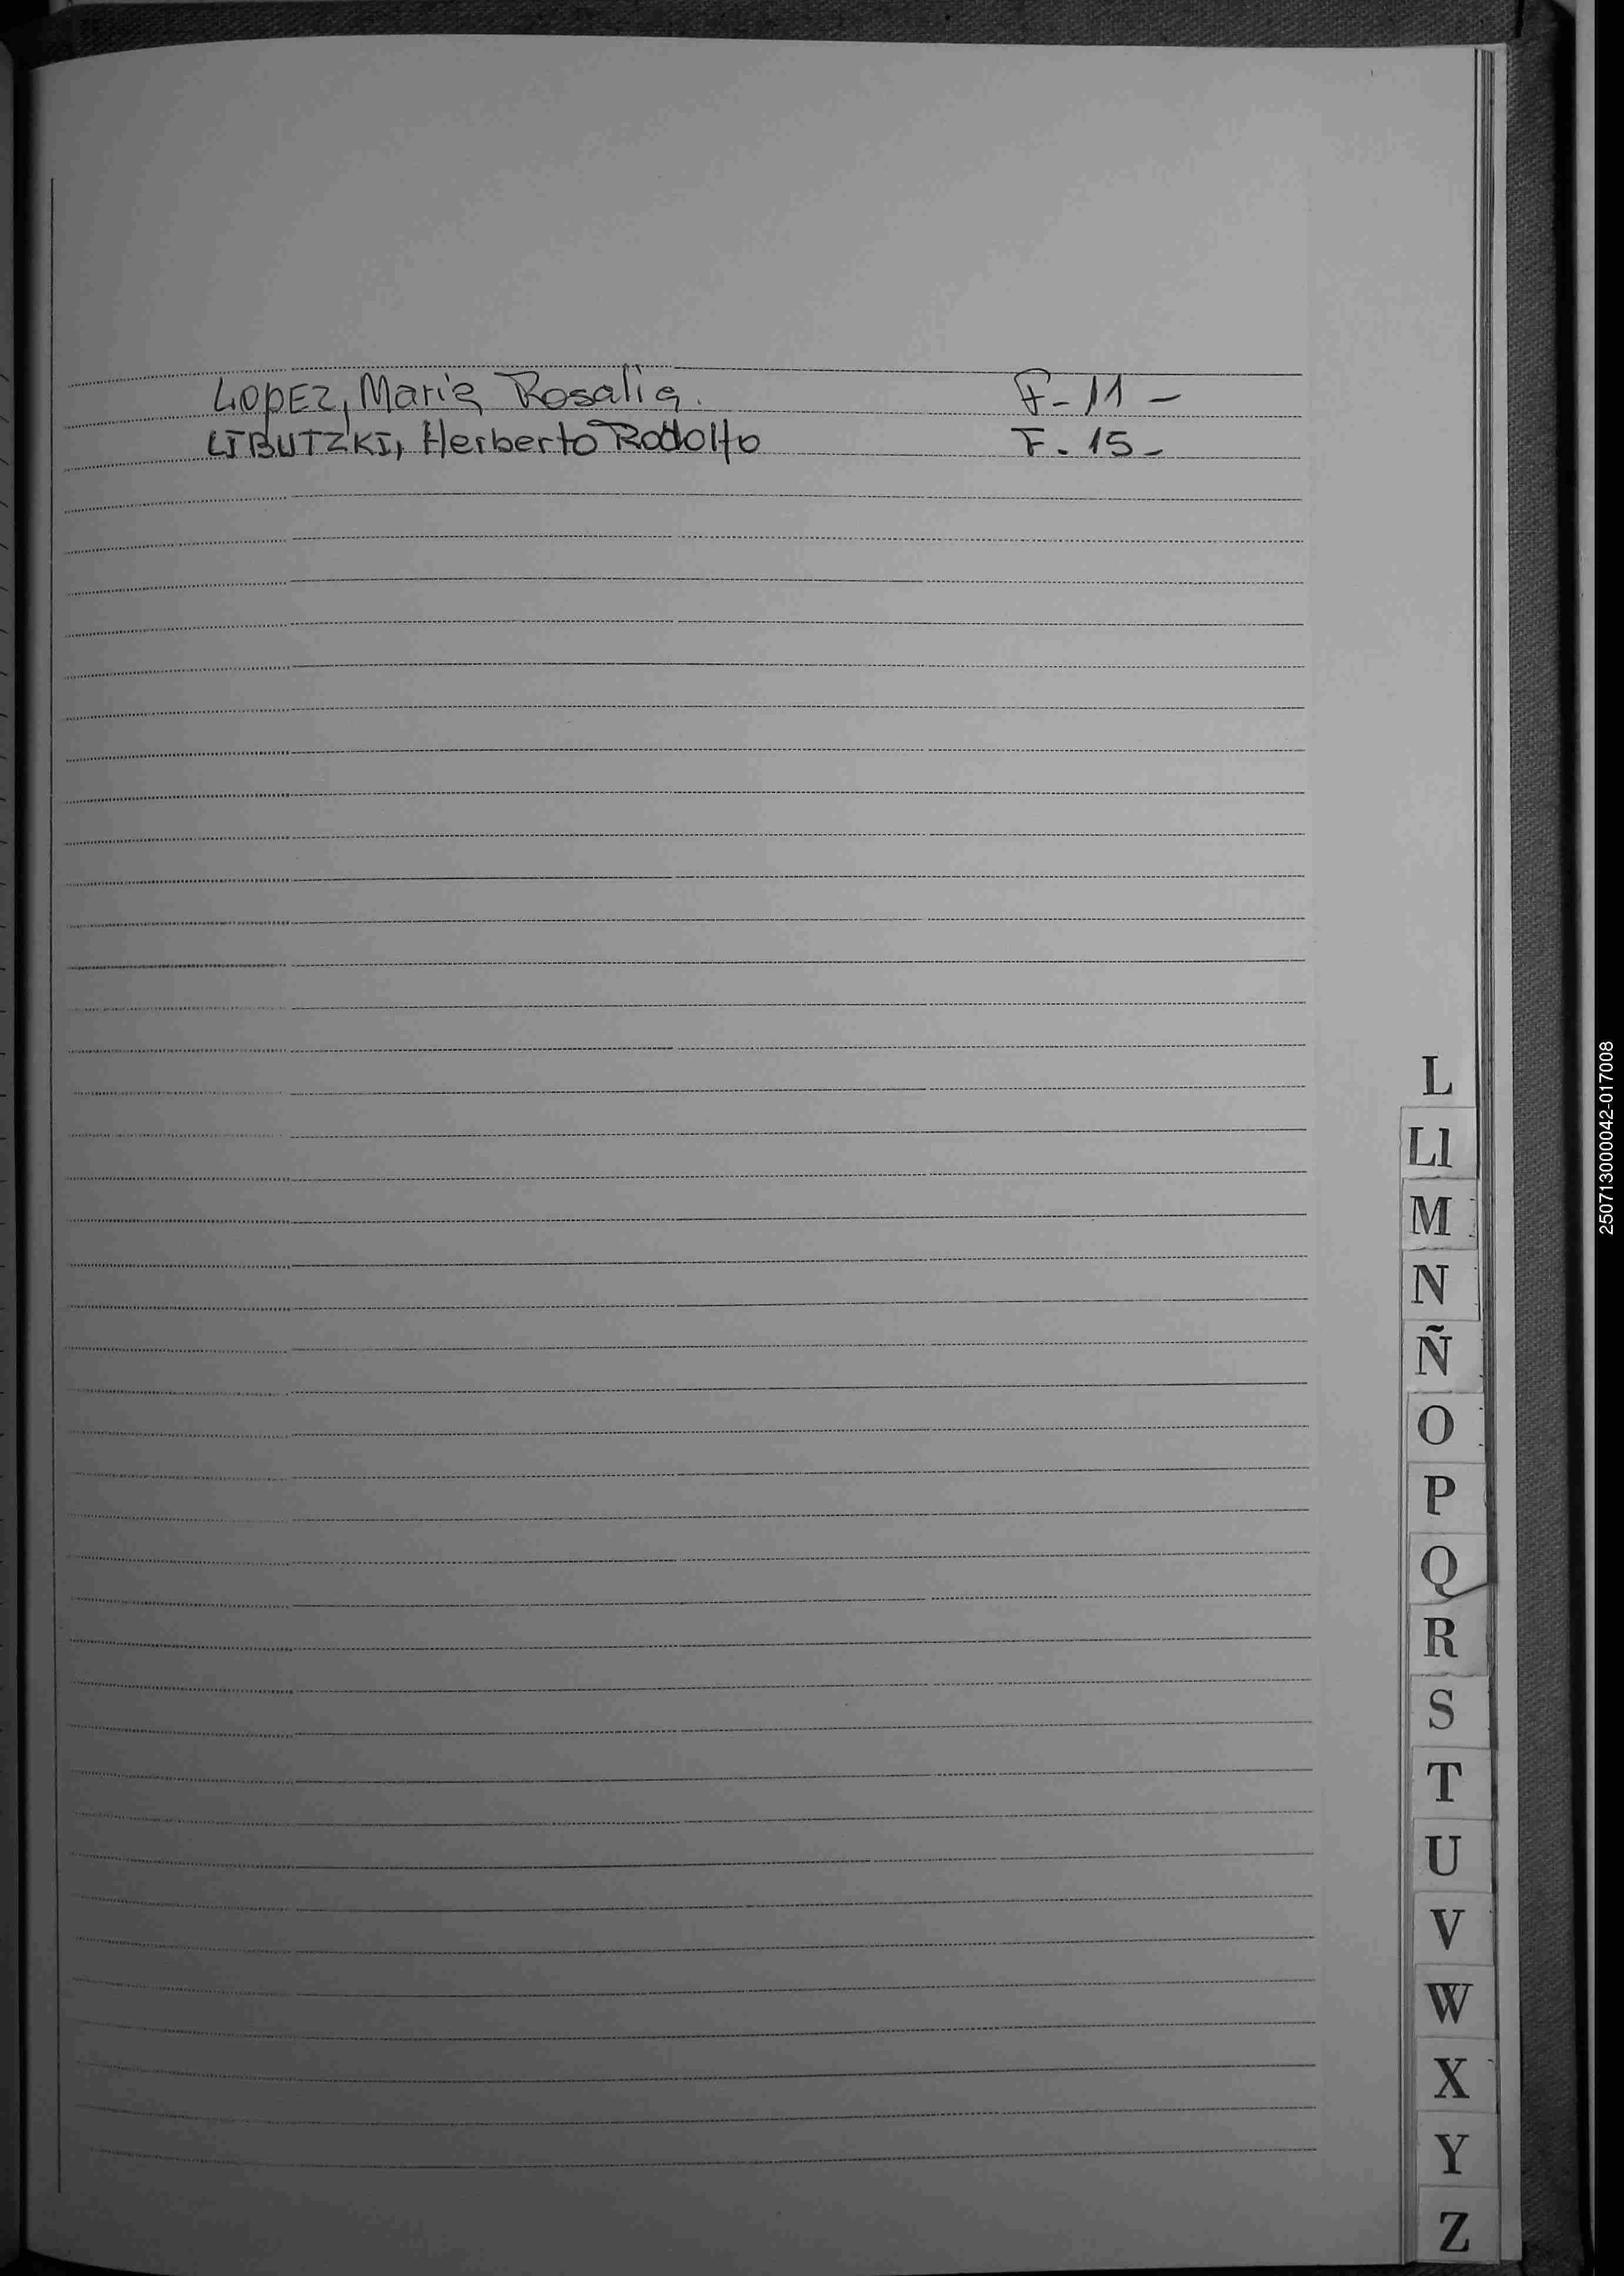 LOPEZ, Maria Rosalia. F-11-
LIBUTZKI, Herberto Rodolfo F-15-
L
Ll
M
N
Ñ
O
P
Q
R
S
T
U
V
W
X
Y
Z
250713000042-017008